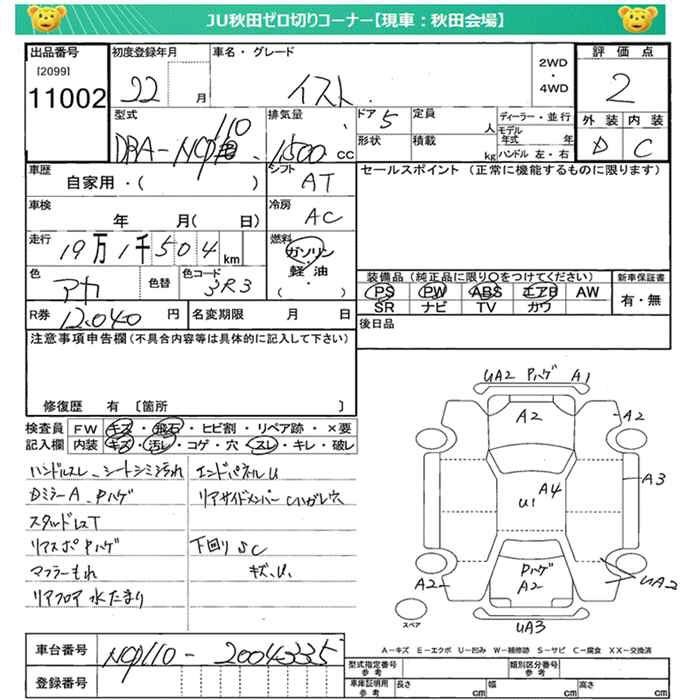 JU秋田ゼロ切りコーナー【現車：秋田会場】
出品番号 初度登録年月 車名・グレード 2WD・4WD 評価点
[2099]
11002 22 月 イスト 2
型式 排気量 ドア 定員 ディーラー・並行 外装 内装
DBA-NCP110 1500 CC 5 人 モデル年式 年 D C
形状 積載 kg ハンドル 左・右
車歴 シフト セールスポイント（正常に機能するものに限ります）
自家用・（ ） AT
車検 冷房
年 月（ 日） AC
走行 燃料
19万1千504km ガソリン・軽油・（ ）
色 色替 色コード 装備品（純正品に限り○をつけてください） 新車保証書
アカ 3R3 PS PW ABS エアB AW 有・無
SR ナビ TV カワ
R券 12,040 円 名変期限 月 日 後日品
注意事項申告欄（不具合内容等は具体的に記入して下さい）
修復歴 有 〔箇所 〕
検査員記入欄 FW キズ・飛石・ヒビ割・リペア跡・×要
内装 キズ・汚レ・コゲ・穴・スレ・キレ・破レ
ハンドルスレ、シートシミ汚れ エンドパネルU
Dミラー A、Pハゲ リアサイドメンバー
スタッドレスT
リアスポ Pハゲ 下回りSC
マフラーもれ キズ、U、
リアフロア 水たまり
UA2 Pハゲ A1
A2 A2
A3
A4
U1
Pハゲ
A2 A2 UA2
スペア UA3
A－キズ E－エクボ U－凹み W－補修跡 S－サビ C－腐食 XX－交換済
車台番号 NCP110-2004335
登録番号
型式指定番号 参考 類別区分番号 参考
車庫証明用 参考 長さ cm 幅 cm 高さ cm